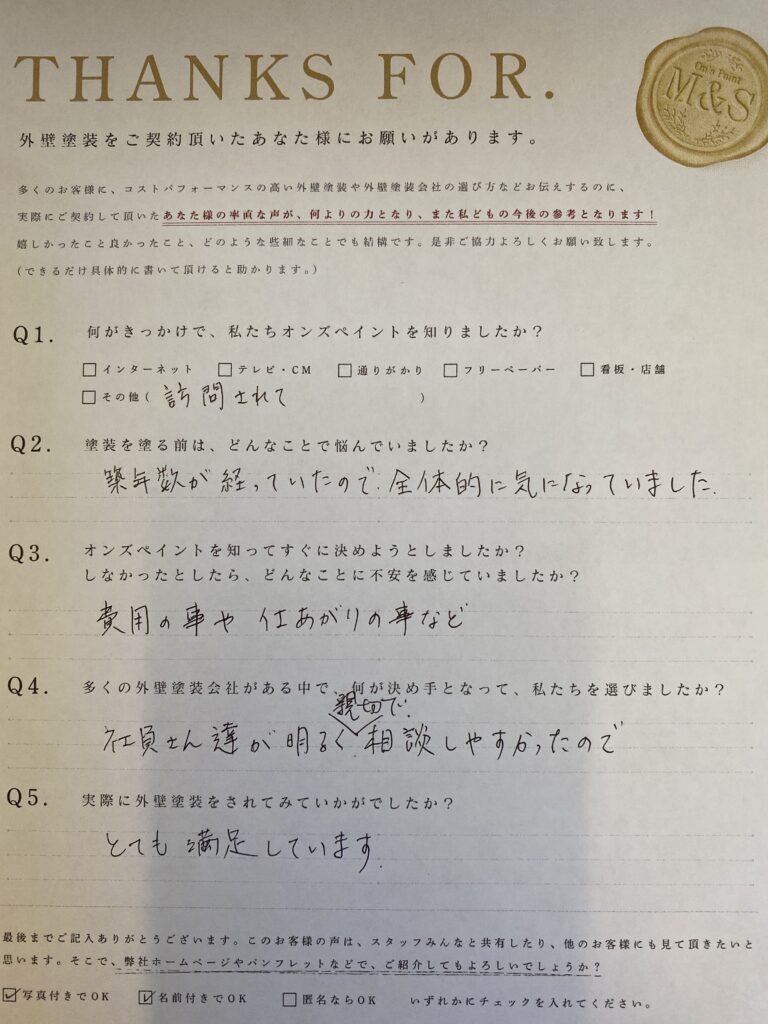 THANKS FOR.
On's Paint
M&S
外壁塗装をご契約頂いたあなた様にお願いがあります。
多くのお客様に、コストパフォーマンスの高い外壁塗装や外壁塗装会社の選び方などお伝えするのに、
実際にご契約して頂いたあなた様の率直な声が、何よりの力となり、また私どもの今後の参考となります！
嬉しかったこと良かったこと、どのような些細なことでも結構です。是非ご協力よろしくお願い致します。
(できるだけ具体的に書いて頂けると助かります。)
Q1. 何がきっかけで、私たちオンズペイントを知りましたか？
□インターネット □テレビ・CM □通りがかり □フリーペーパー □看板・店舗
□その他( 訪問されて )
Q2. 塗装を塗る前は、どんなことで悩んでいましたか？
築年数が経っていたので、全体的に気になっていました。
Q3. オンズペイントを知ってすぐに決めようとしましたか？
しなかったとしたら、どんなことに不安を感じていましたか？
費用の事や仕あがりの事など
Q4. 多くの外壁塗装会社がある中で、何が決め手となって、私たちを選びましたか？
親切で、
社員さん達が明るく、相談しやすかったので
Q5. 実際に外壁塗装をされてみていかがでしたか？
とても満足しています。
最後までご記入ありがとうございます。このお客様の声は、スタッフみんなと共有したり、他のお客様にも見て頂きたいと
思います。そこで、弊社ホームページやパンフレットなどで、ご紹介してもよろしいでしょうか？
☑写真付きでOK ☑名前付きでOK □匿名ならOK いずれかにチェックを入れてください。